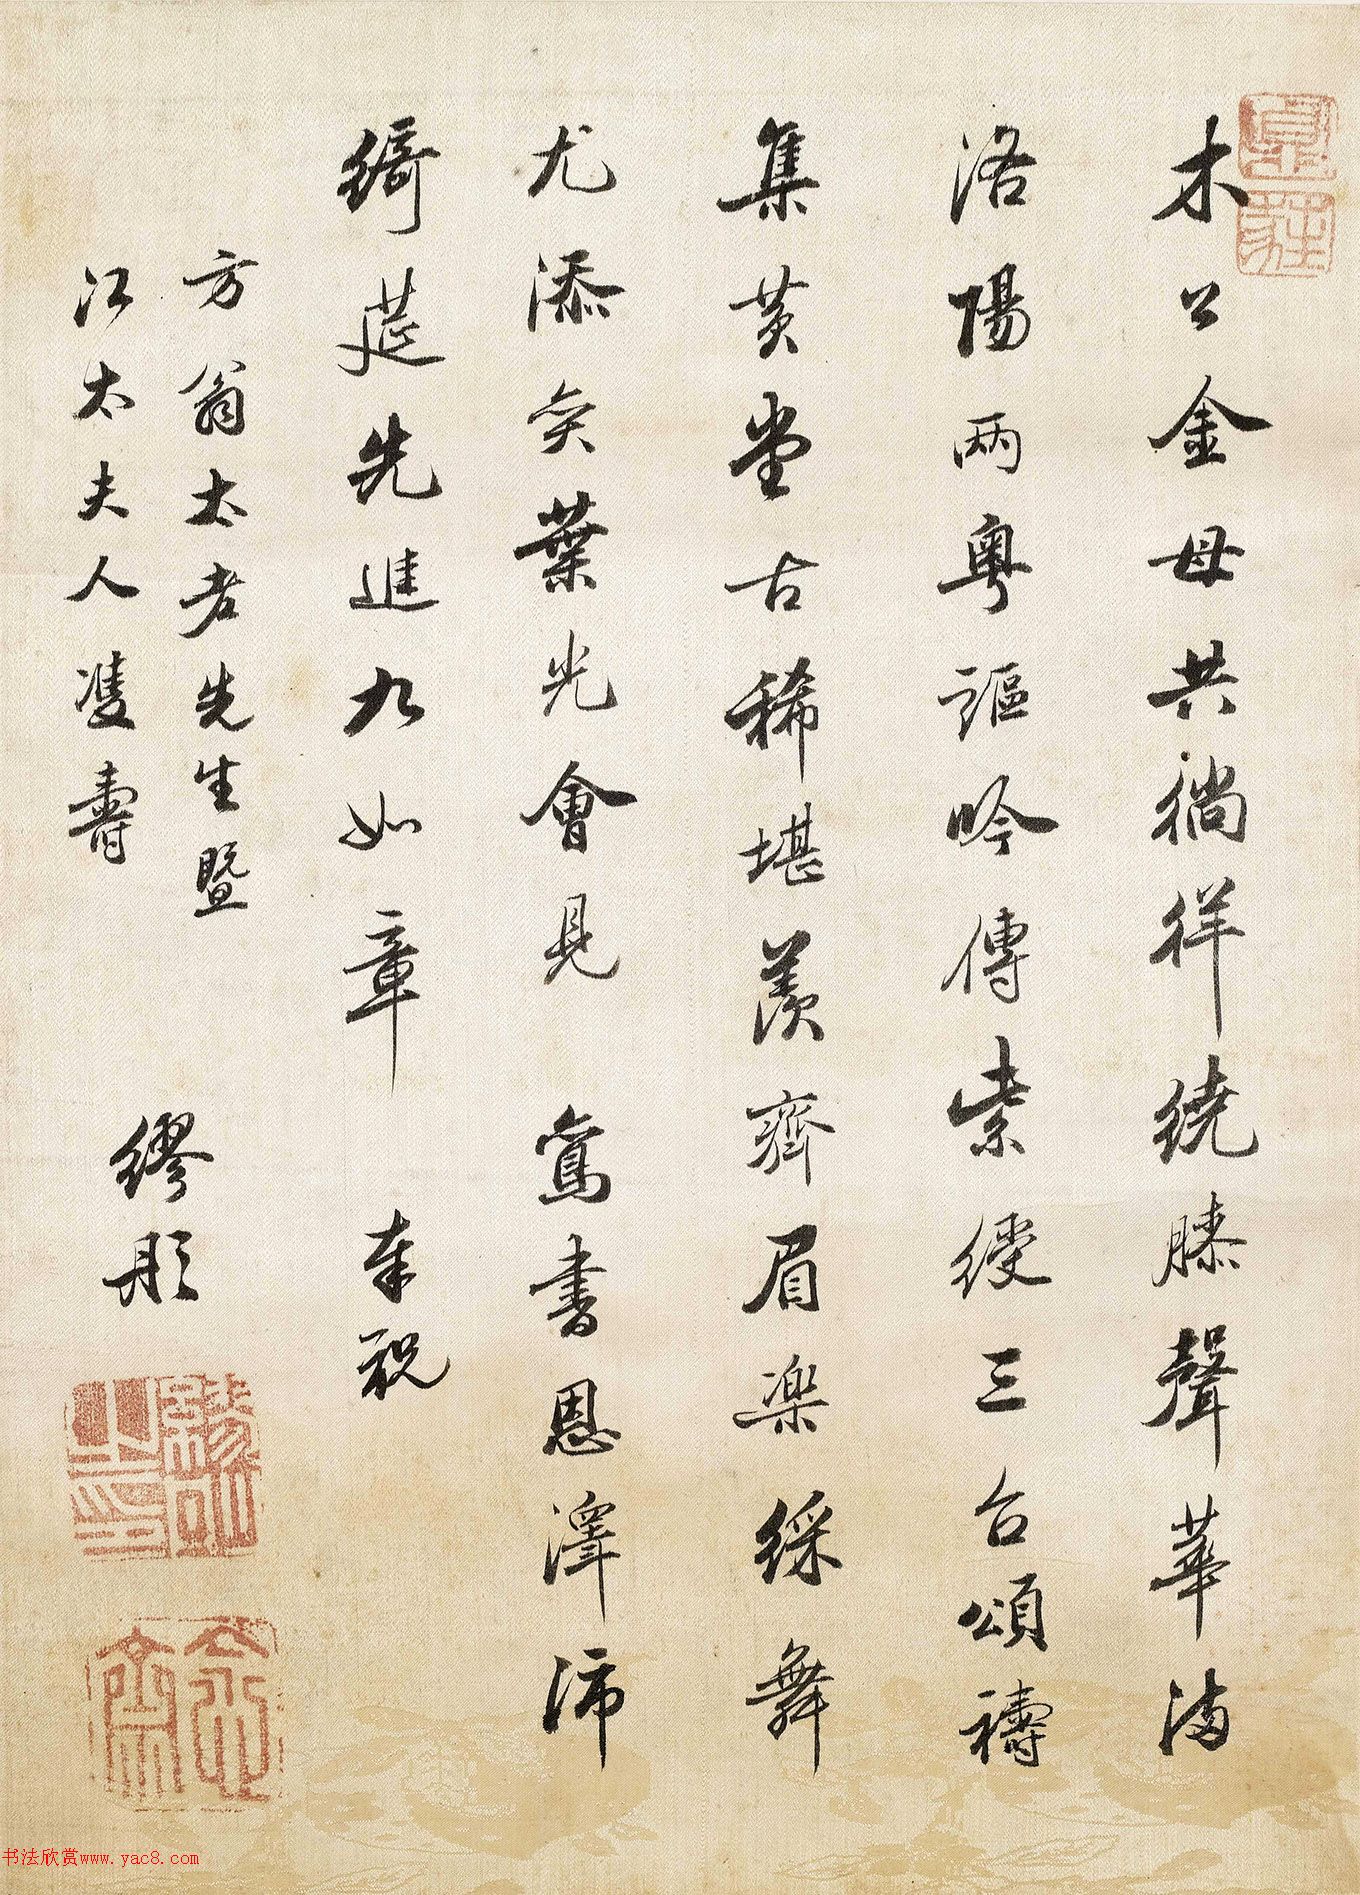 木公金母共徜徉繞膝聲華滿
洛陽兩粵謳吟傳紫綬三台頌禱
集黃堂古稀堪羨齊眉樂綵舞
尤添奕葉光會見鸞書恩澤沛
綺莚先進九如章 奉祝
方翁太老先生暨
江太夫人雙壽
繆彤
书法欣赏www.yac8.com